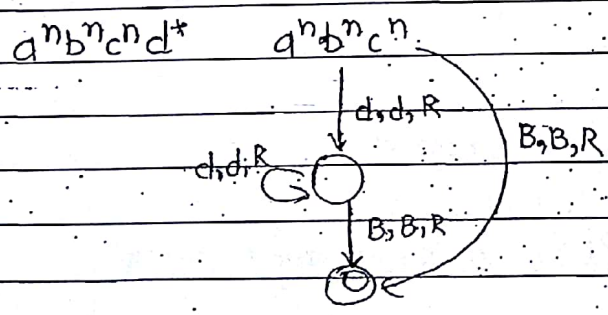 aⁿbⁿcⁿd* aⁿbⁿcⁿ
d,d,R
B,B,R
d,d,R
B,B,R